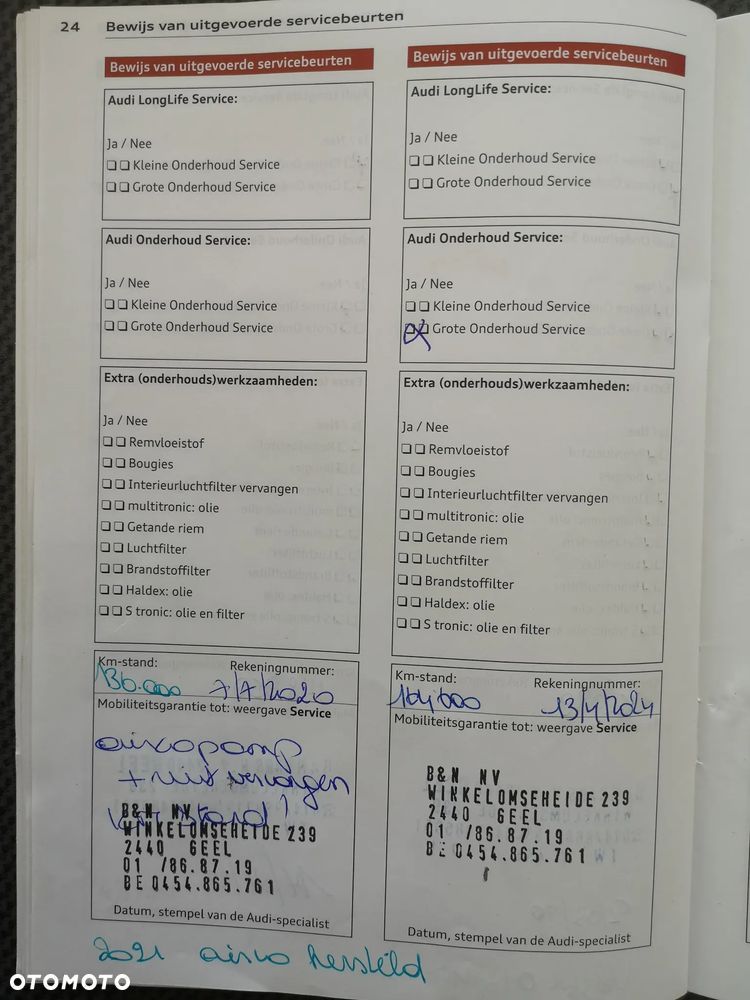 24 Bewijs van uitgevoerde servicebeurten
Bewijs van uitgevoerde servicebeurten
Audi LongLife Service:
Ja / Nee
Kleine Onderhoud Service
Grote Onderhoud Service
Audi Onderhoud Service:
Ja / Nee
Kleine Onderhoud Service
Grote Onderhoud Service
Extra (onderhouds)werkzaamheden:
Ja / Nee
Remvloeistof
Bougies
Interieurluchtfilter vervangen
multitronic: olie
Getande riem
Luchtfilter
Brandstoffilter
Haldex: olie
S tronic: olie en filter
Km-stand: Rekeningnummer:
136.000 7/7/2020
Mobiliteitsgarantie tot: weergave Service
aircopomp
+
B&N NV
WINKELOMSEHEIDE 239
2440 GEEL
01 /86.87.19
BE 0454.865.761
Datum, stempel van de Audi-specialist
2021 airco hersteld
Bewijs van uitgevoerde servicebeurten
Audi LongLife Service:
Ja / Nee
Kleine Onderhoud Service
Grote Onderhoud Service
Audi Onderhoud Service:
Ja / Nee
Kleine Onderhoud Service
Grote Onderhoud Service
Extra (onderhouds)werkzaamheden:
Ja / Nee
Remvloeistof
Bougies
Interieurluchtfilter vervangen
multitronic: olie
Getande riem
Luchtfilter
Brandstoffilter
Haldex: olie
S tronic: olie en filter
Km-stand: Rekeningnummer:
Mobiliteitsgarantie tot: weergave Service
B&N NV
WINKELOMSEHEIDE 239
2440 GEEL
01 /86.87.19
BE 0454.865.761
Datum, stempel van de Audi-specialist
OTOMOTO